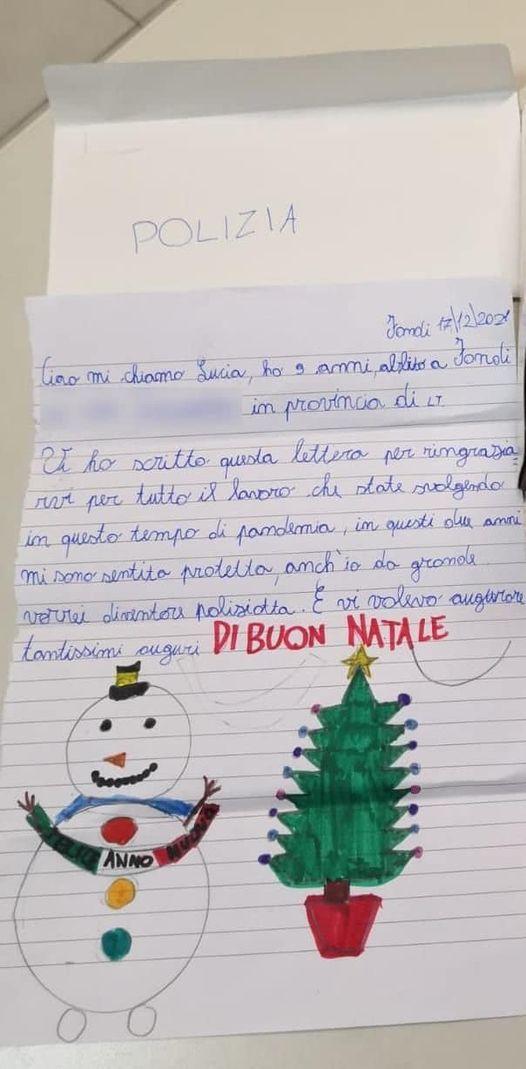 POLIZIA
Fondi 17/12/2021
Ciao mi chiamo Lucia, ho 9 anni, abito a Fondi
in provincia di LT.
Vi ho scritto questa lettera per ringrazia
rvi per tutto il lavoro che state svolgendo
in questo tempo di pandemia, in questi due anni
mi sono sentita protetta, anch'io da grande
vorrei diventare poliziotta. E vi volevo augurare
tantissimi auguri DI BUON NATALE
FELICE ANNO NUOVO